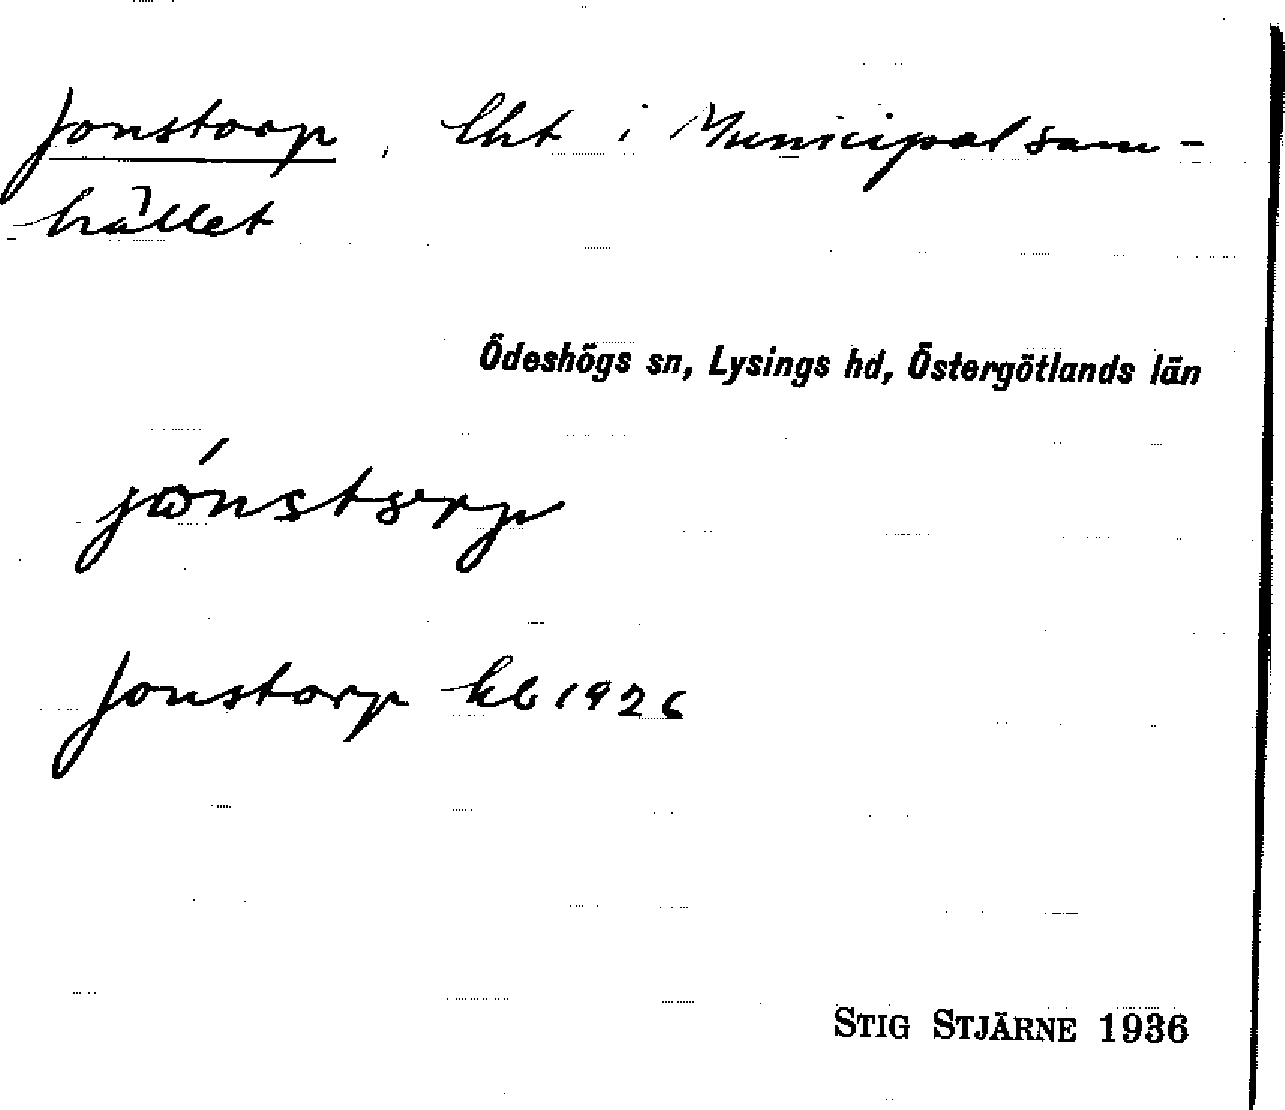 Jonstorp, lht i Municipalsam-
hället
Ödeshögs sn, Lysings hd, Östergötlands län
Jonstorp kb 1926
STIG STJÄRNE 1936